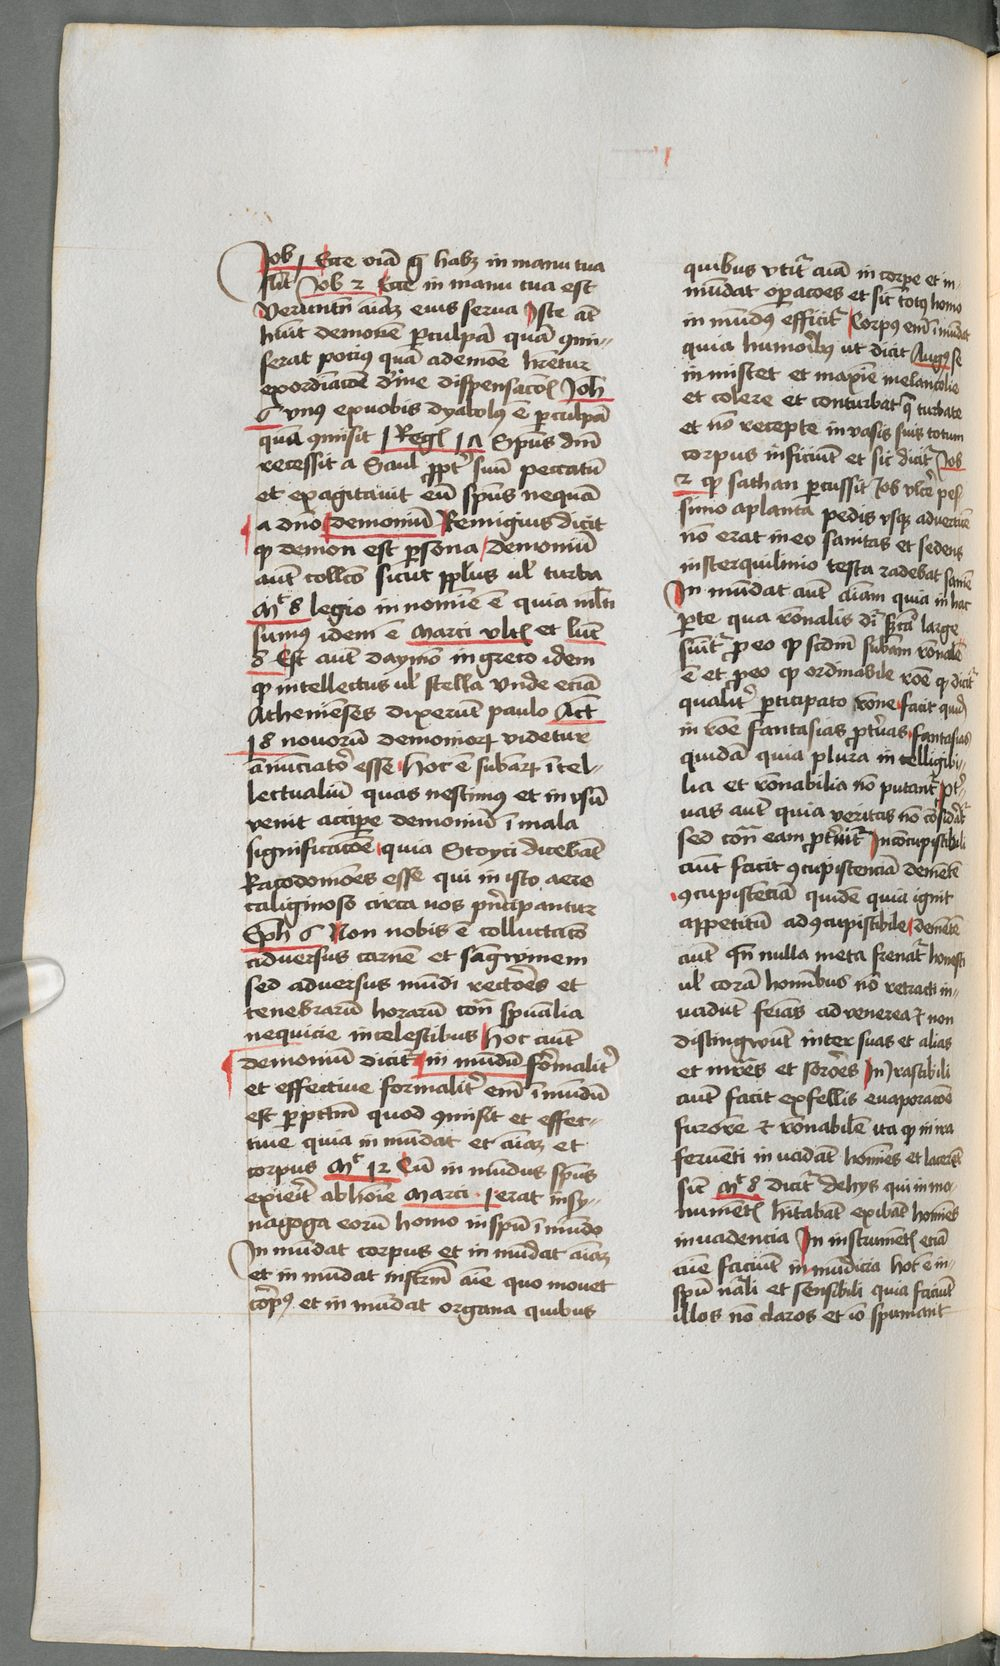 Job 1 Ecce oia q̄ habꝫ in manu tua
sūt Job 2 Ecce in manu tua est
Verumtn̄ aīaꝫ eius serua Iste at̄
hūit demonē ꝑ culpā quā ꝯmi-
serat potius quā a demōe hr̄etur
ex ordiātōe diuīe dispensatōis Joh
6 vnus ex vobis dyabolus ē ꝑ culpā
quā ꝯmisit 1 Regꝭ 1Λ Spūs dn̄i
recessit a Saul ꝓptʼ suū peccatū
et exagitauit eū spūs nequā
a dn̄o demoniū Remigius dicit
ꝙ demon est ꝑsona demoniū
aut̄ collc̄o sicut pp̄lus ul̓ turba
Mt̓ 8 legio in nomīe ē quia ml̄ti
sumus idem ē Marci vltꝭ et luc̄
8 Est aut̄ daymō in greco idem
ꝙ intellectus ul̓ stella Vnde eciā
Atheniēses dixerūt paulo Act̄
18 nouorū demonioꝝ videtur
ānūciatōr esse hoc ē subaꝝ ītel-
lectualiū quas nescimus et in vsū
venit accipe demoniū ī mala
significatōe quia Stoyci dicebāt
Kacodomōes esse qui in isto aere
caliginoso circa nos pn̄cipantur
Eph 6 Non nobis ē colluctatō
aduersus carnē et sāgwinem
sed aduersus mūdi rectores et
tenebrarū horarū con̄ spūalia
nequicie in celestibus hoc aut̄
demoniū dicit̓ in mūdū fōrmalitʼ
et effectiue formalitʼ em̄ ī mūdū
est ꝑ pctm̄ quod ꝯmisit et effec-
tiue quia in mūdat et aīaꝫ et
corpus Mt̓ 12 Cū in mūdus spūs
exierit ab hoīe Marci 1 erat in sy-
nagoga eorū homo in spū ī mūdo
In mūdat corpus et in mūdat aīaꝫ
et in mūdat instrm̄ aīe quo mouet
corpꝰ et in mūdat organa quibus
quibus vtit̓ aīa in corpe et in-
mūdat operacōes et sic totꝰ homo
in mūdꝰ efficit̓ Corpus em̄ ī mūdat
quia humoribꝰ ut dicit Augꝰ se
in miscet et maxīe melancolie
et colere et conturbat q̄ turbate
et nō recepte in vasis suis totum
corpus inficiūt et sic dicit̓ Job
2 ꝙ sathan ꝑcussit Job vlcē pes
simo a planta pedis vsqꝫ ad verticē
nō erat in eo sanitas et sedens
in sterquilinio testa radebat saniē
In mūdat aut̄ aīam quia in hac
ꝑte qua rōnalis dr̄ large
ꝓ eo ꝙ scdm̄ subam rōnalē
ē et ꝓ eo ꝙ ordinabile rōe ꝙ dicit̓
qualitʼ ꝑticipato rōne facit quid̄
in rōe fantasias ꝓtuas fantasias
quidā quia plura in telligibi-
lia et rōnabilia nō putant̓ ꝓt-
uas aut̄ quia veritas nō
sed con̄ eam In concupiscibili
aut̄ facit ꝯcupiscenciā demētē
ꝯcupiscēciā quidē quia ignit
appetitū ad ꝯcupiscibile demētē
aut̄ qn̄ nulla meta frenat̓ honesti
ul̓ corā hominibus nō retracti in-
uadūt feīas ad venerea ⁊ non
distingwūt inter suas et alias
et mr̄es et sorōres In irascibili
aut̄ facit ex fellis euaporatōe
furorē ⁊ rōnabilē ita ꝙ in ira
feruēti in uadāt homīes et lacerēt
sic̄ Mt̓ 8 dicit̓ de hys qui in mo-
numētꝭ hītabāt exibāt homīes
in uadencia In instrumētꝭ eciā
aīe faciūt in mūdicia hoc ē in-
spū nāli et sensibili quia faciūt
illos nō claros et iō spumant